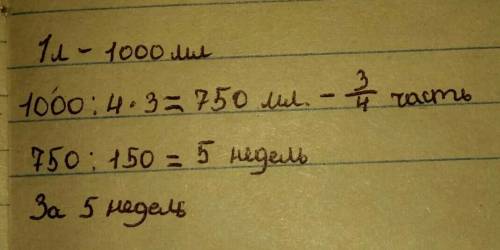 1л - 1000 мл
1000 : 4 · 3 = 750 мл. - 3/4 часть
750 : 150 = 5 недель
За 5 недель